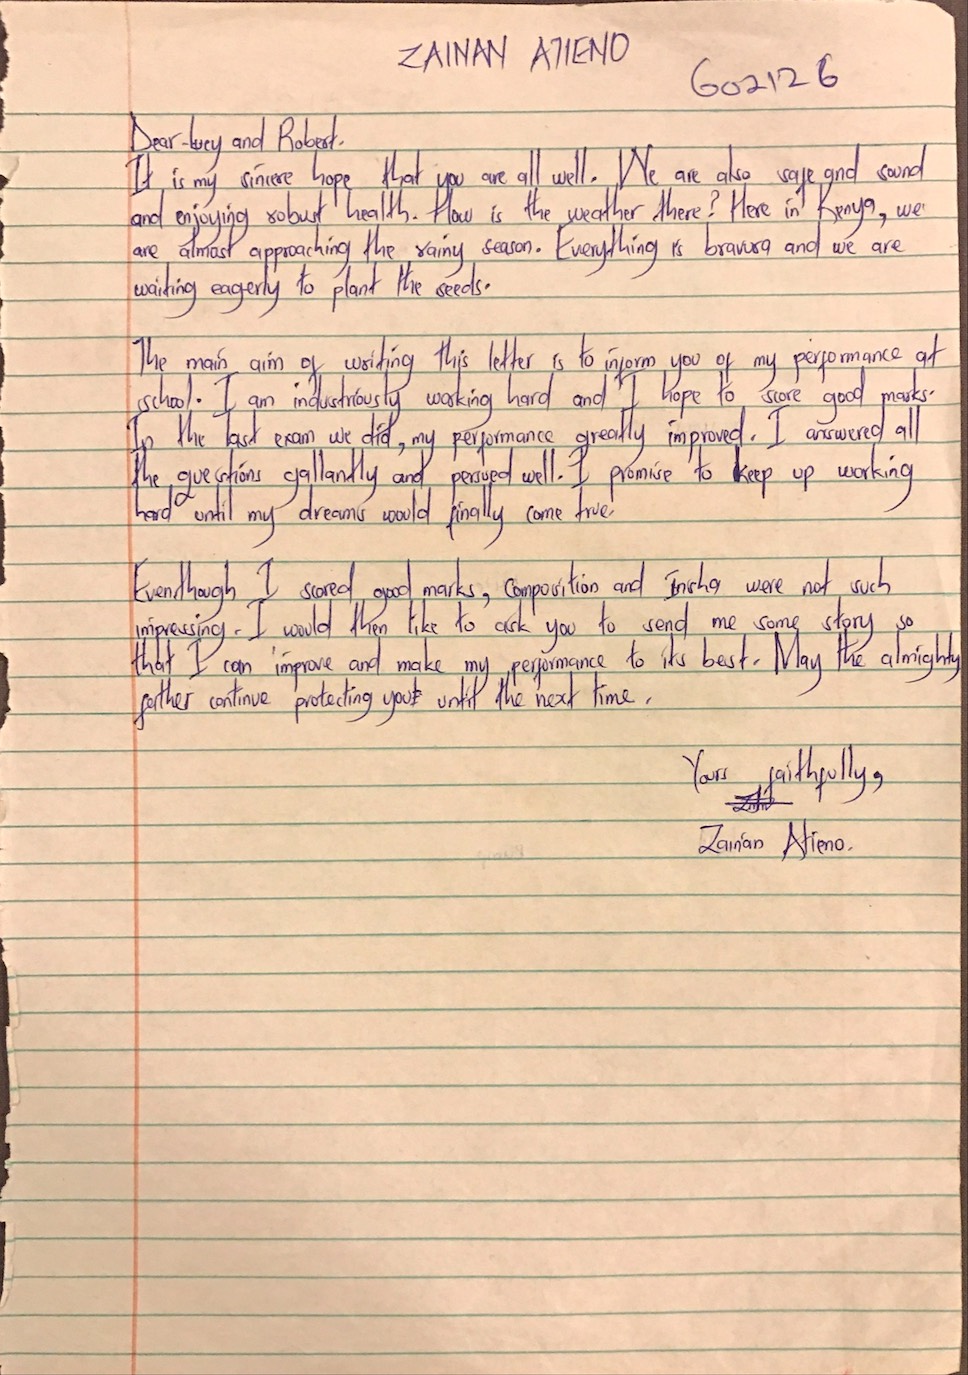 ZAINAN ATIENO
602126
Dear Lucy and Robert.
It is my sincere hope that you are all well. We are also safe and sound
and enjoying robust health. How is the weather there? Here in Kenya, we
are almost approaching the rainy season. Everything is bravura and we are
waiting eagerly to plant the seeds.
The main aim of writing this letter is to inform you of my performance at
school. I am industriously working hard and I hope to score good marks.
In the last exam we did, my performance greatly improved. I answered all
the questions gallantly and well. I promise to keep up working
hard until my dreams would finally come true.
Eventhough I scored good marks, Composition and Insha were not such
impressing. I would then like to ask you to send me some story so
that I can improve and make my performance to its best. May the almighty
father continue protecting until the next time.
Yours faithfully,
Zainan Atieno.